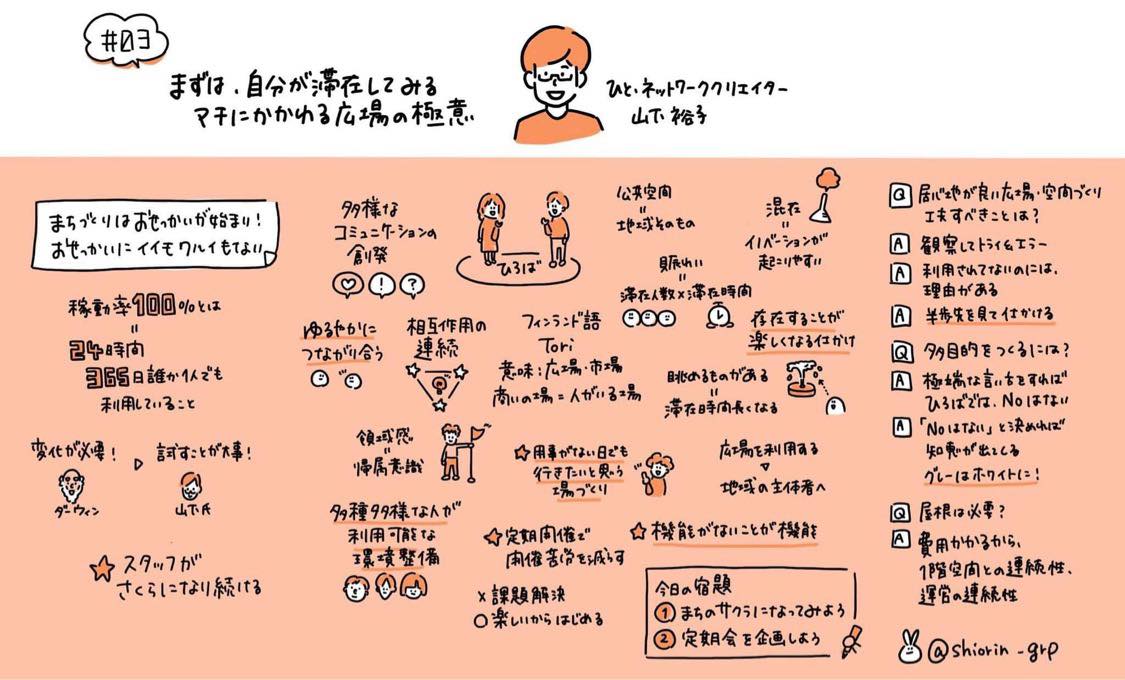 #03
まずは、自分が滞在してみる
マチにかかわる広場の極意
ひと・ネットワーククリエイター
山下裕子
まちづくりはおせっかいが始まり!
おせっかいにイイもワルイもない
稼動率100%とは
=
24時間
365日誰か1人でも
利用していること
変化が必要!
試すことが大事!
ダーウィン
山下氏
スタッフが
さくらになり続ける
多様な
コミュニケーションの
創発
! ?
ひろば
ゆるやかに
つながり合う
相互作用の
連続
領域感
=
帰属意識
多種多様な人が
利用可能な
環境整備
フィンランド語
Tori
意味:広場・市場
商いの場=人がいる場
用事がない日でも
行きたいと思う
場づくり
定期開催で
開催苦労を減らす
×課題解決
○楽しいからはじめる
公共空間
=
地域そのもの
賑わい
=
滞在人数×滞在時間
混在
=
イノベーションが
起こりやすい
存在することが
楽しくなる仕かけ
眺めるものがある
=
滞在時間長くなる
広場を利用する
地域の主体者へ
機能がないことが機能
今日の宿題
① まちのサクラになってみよう
② 定期会を企画しよう
Q 居心地が良い広場・空間づくり
工夫すべきことは?
A 観察してトライ&エラー
A 利用されてないのには、
理由がある
A 半歩先を見て仕かける
Q 多目的をつくるには?
A 極端な言い方をすれば
ひろばでは、Noはない
A 「Noはない」と決めれば
知恵が出てくる
グレーはホワイトに!
Q 屋根は必要?
A 費用かかるから、
1階空間との連続性、
運営の連続性
@shiorin_grp